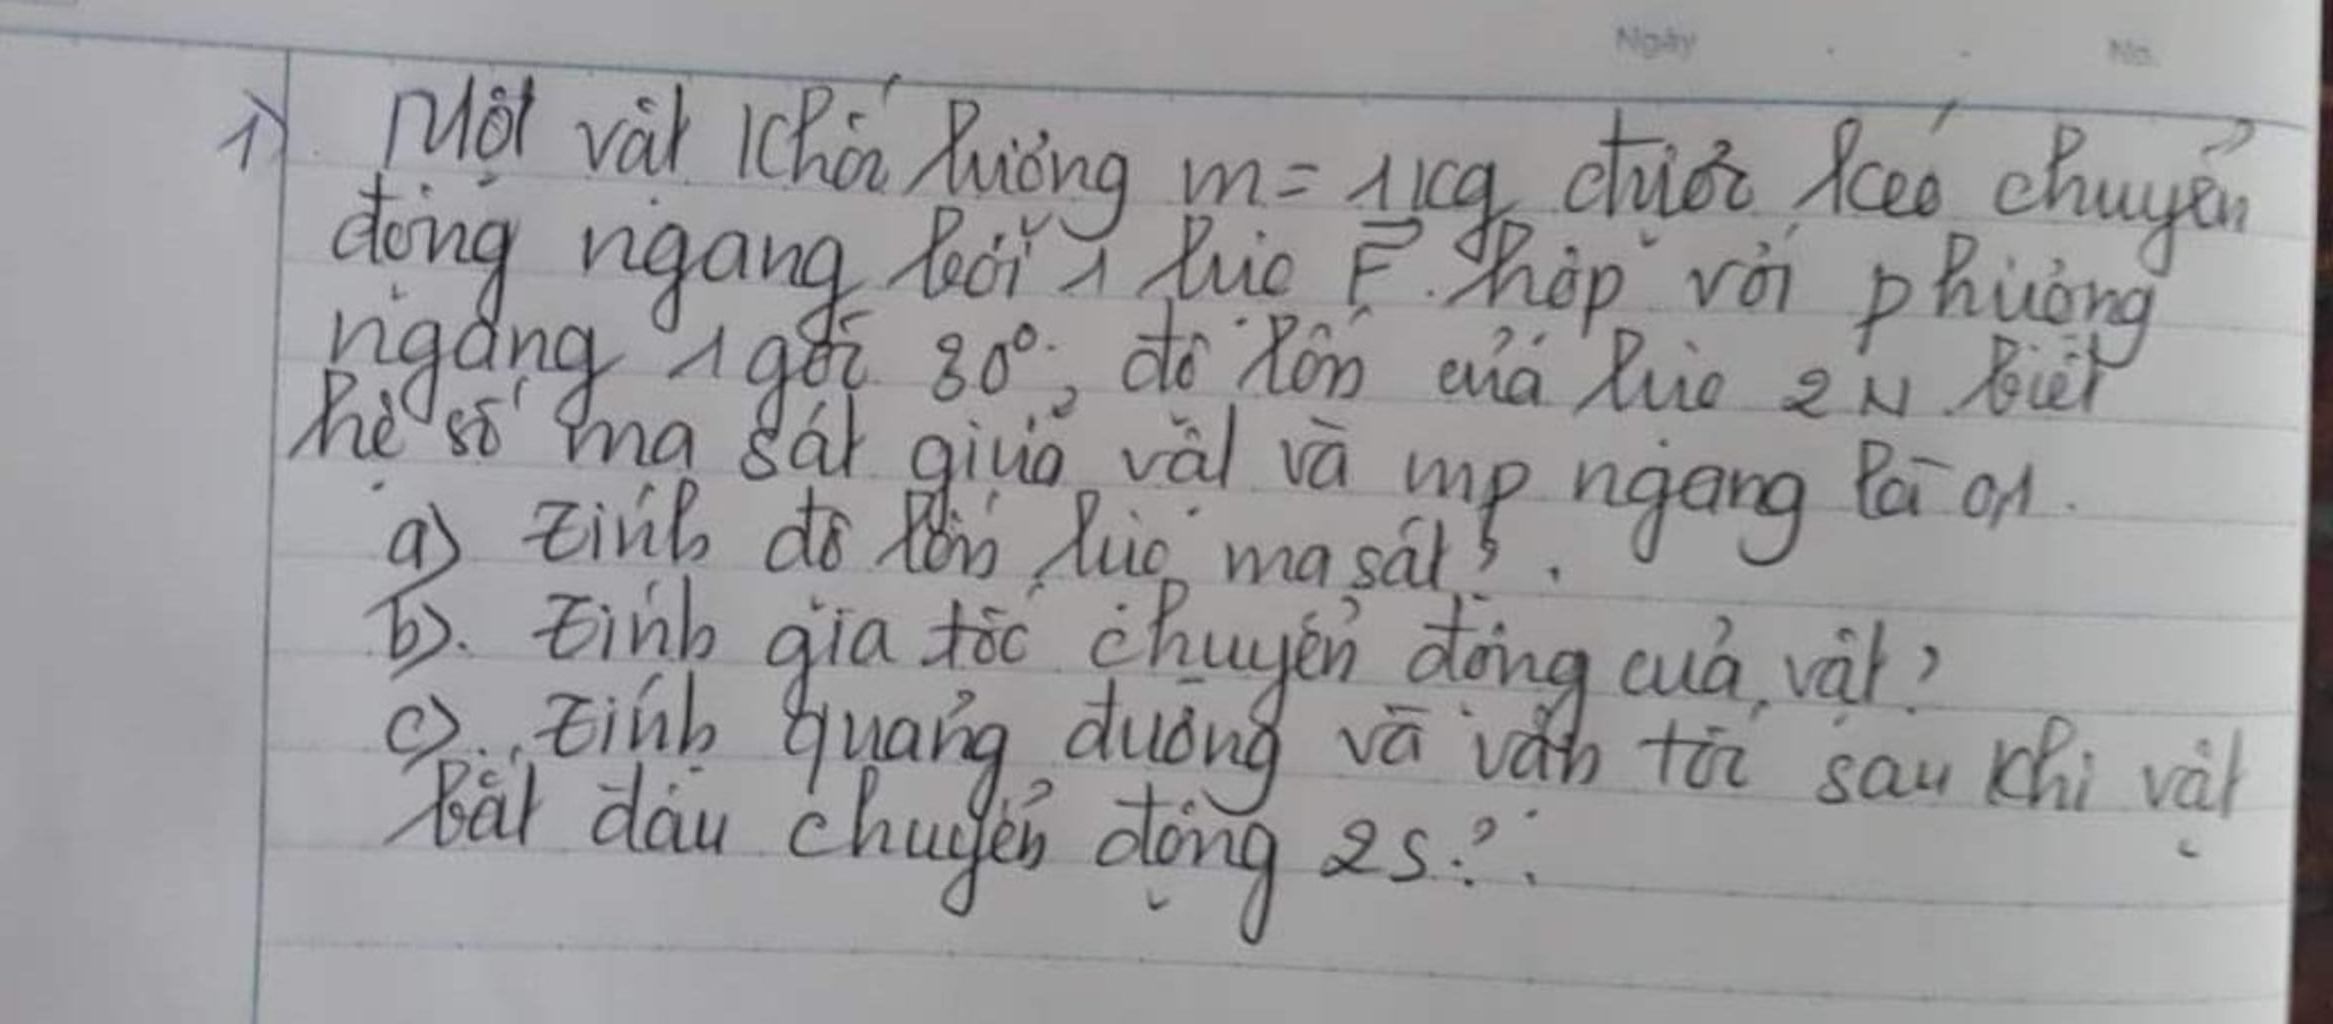 Ngày No.
1) Một vật khối lượng m = 1kg được kéo chuyển
động ngang bởi 1 lực F hợp với phương
ngang 1 góc 30°, độ lớn của lực 2N biết
hệ số ma sát giữa vật và mp ngang là 0,1.
a) Tính độ lớn lực ma sát?.
b). Tính gia tốc chuyển động của vật?
c). Tính quãng đường và vận tốc sau khi vật
bắt đầu chuyển động 2s?.